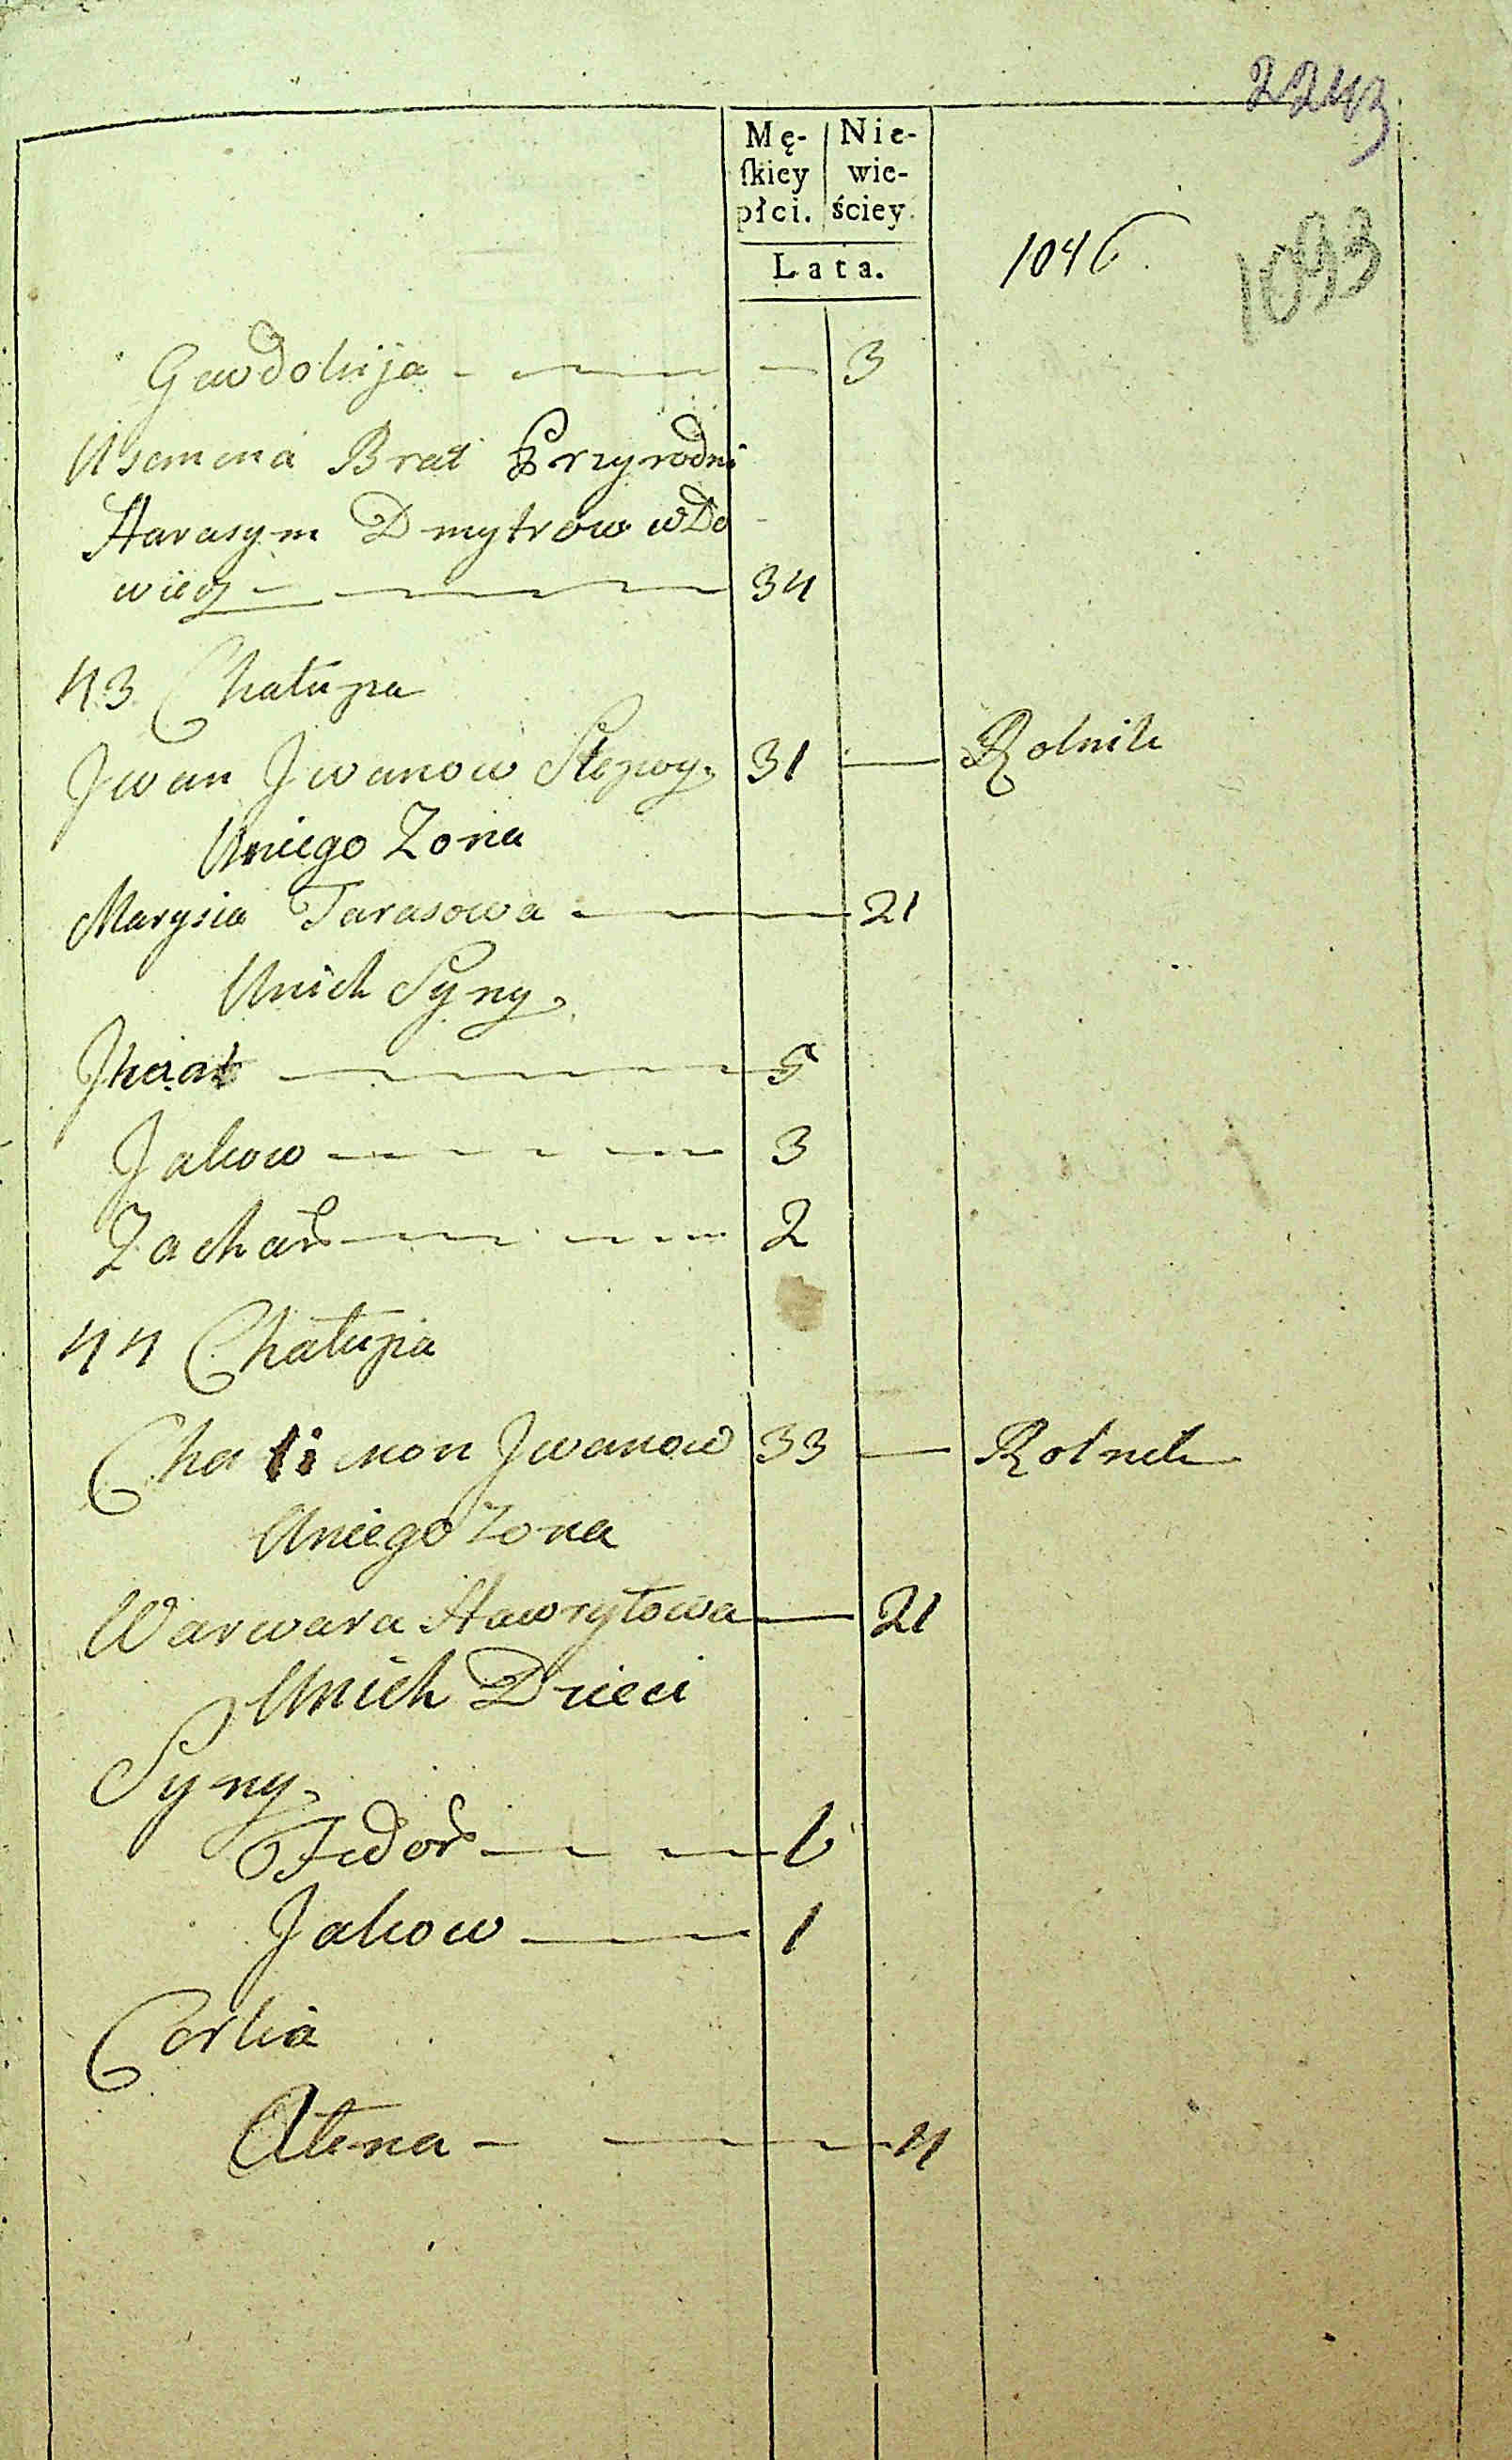 2243
Mę-
ſkiey
płci.
Nie-
wie-
ściey.
Lata.
1046
1093
Gawdokija - 3
Usemena Brat Przyrodni
Harasym Dmytrow wdo
wiec 34
43 Chałupa
Jwan Jwanow 31 — Rolnik
Uniego Zona
Marysia Tarasowa — 21
Unich Syny
Jhnat 5
Jakow 3
Zachar 2
44 Chałupa
Chalimon Jwanow 33 — Rolnik
Uniego Zona
Warwara Hawryłowa — 21
Unich Dzieci
Syny
Fedor 6
Jakow — 1
Corka
Olena - 4